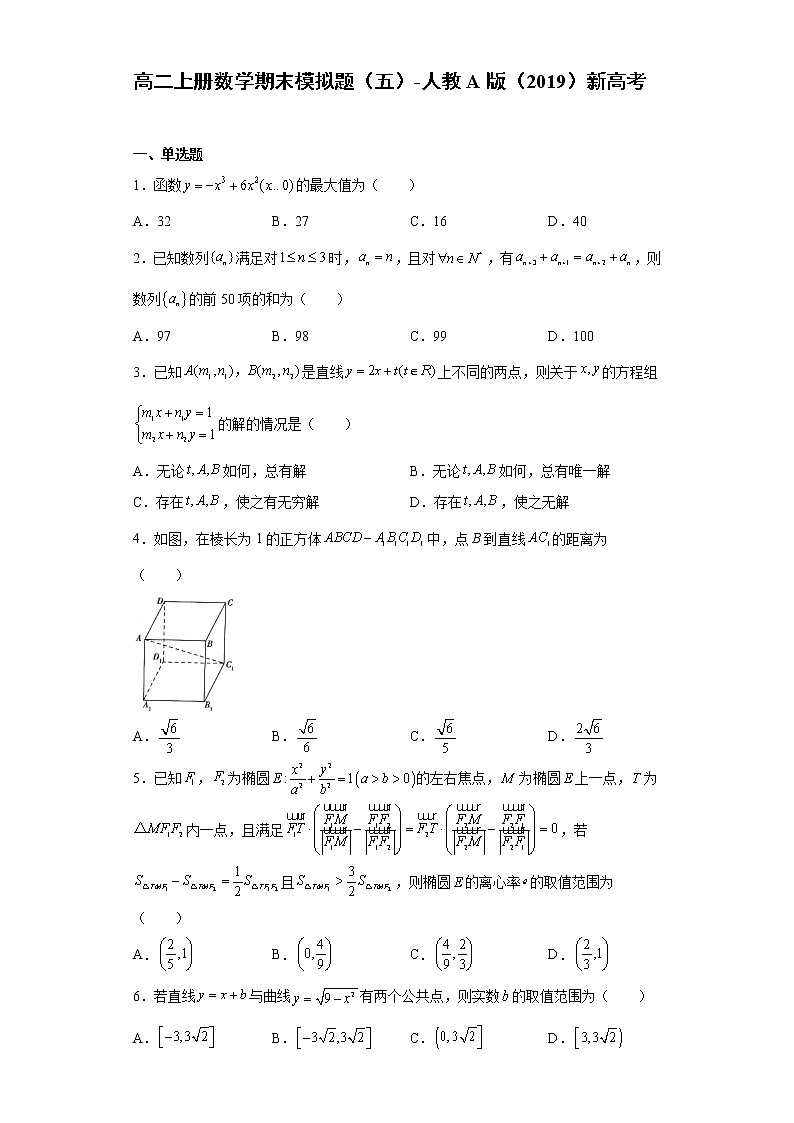 高二上册数学期末模拟题（五）-人教A版（2019）新高考
一、单选题
1．函数y = −x³ + 6x²(x.. 0)的最大值为（　　）
A．32　B．27　C．16　D．40
2．已知数列{aₙ}满足对1 ≤ n ≤ 3时，aₙ = n，且对∀n ∈ N*，有aₙ₊₃ + aₙ₊₁ = aₙ₊₂ + aₙ，则
数列{aₙ}的前50项的和为（　　）
A．97　B．98　C．99　D．100
3．已知A(m₁,n₁)，B(m₂,n₂)是直线y = 2x + t(t ∈ R)上不同的两点，则关于x, y的方程组
{m₁x + n₁y = 1
m₂x + n₂y = 1的解的情况是（　　）
A．无论t, A, B如何，总有解　B．无论t, A, B如何，总有唯一解
C．存在t, A, B，使之有无穷解　D．存在t, A, B，使之无解
4．如图，在棱长为1的正方体ABCD − A₁B₁C₁D₁中，点B到直线AC₁的距离为
（　　）
D C
A B
D₁ C₁
A₁ B₁
A．√6/3　B．√6/6　C．√6/5　D．2√6/3
5．已知F₁，F₂为椭圆E: x²/a² + y²/b² = 1(a > b > 0)的左右焦点，M为椭圆E上一点，T为
△MF₁F₂内一点，且满足F₁T·(F₁M/|F₁M| − F₁F₂/|F₁F₂|) = F₂T·(F₂M/|F₂M| − F₂F₁/|F₂F₁|) = 0，若
S△TMF₁ − S△TMF₂ = 1/2 S△TF₁F₂且S△TMF₁ > 3/2 S△TMF₂，则椭圆E的离心率e的取值范围为
（　　）
A．(2/5,1)　B．(0,4/9)　C．(4/9,2/3)　D．(2/3,1)
6．若直线y = x + b与曲线y = √(9 − x²)有两个公共点，则实数b的取值范围为（　　）
A．[−3,3√2]　B．[−3√2,3√2]　C．(0,3√2]　D．[3,3√2)